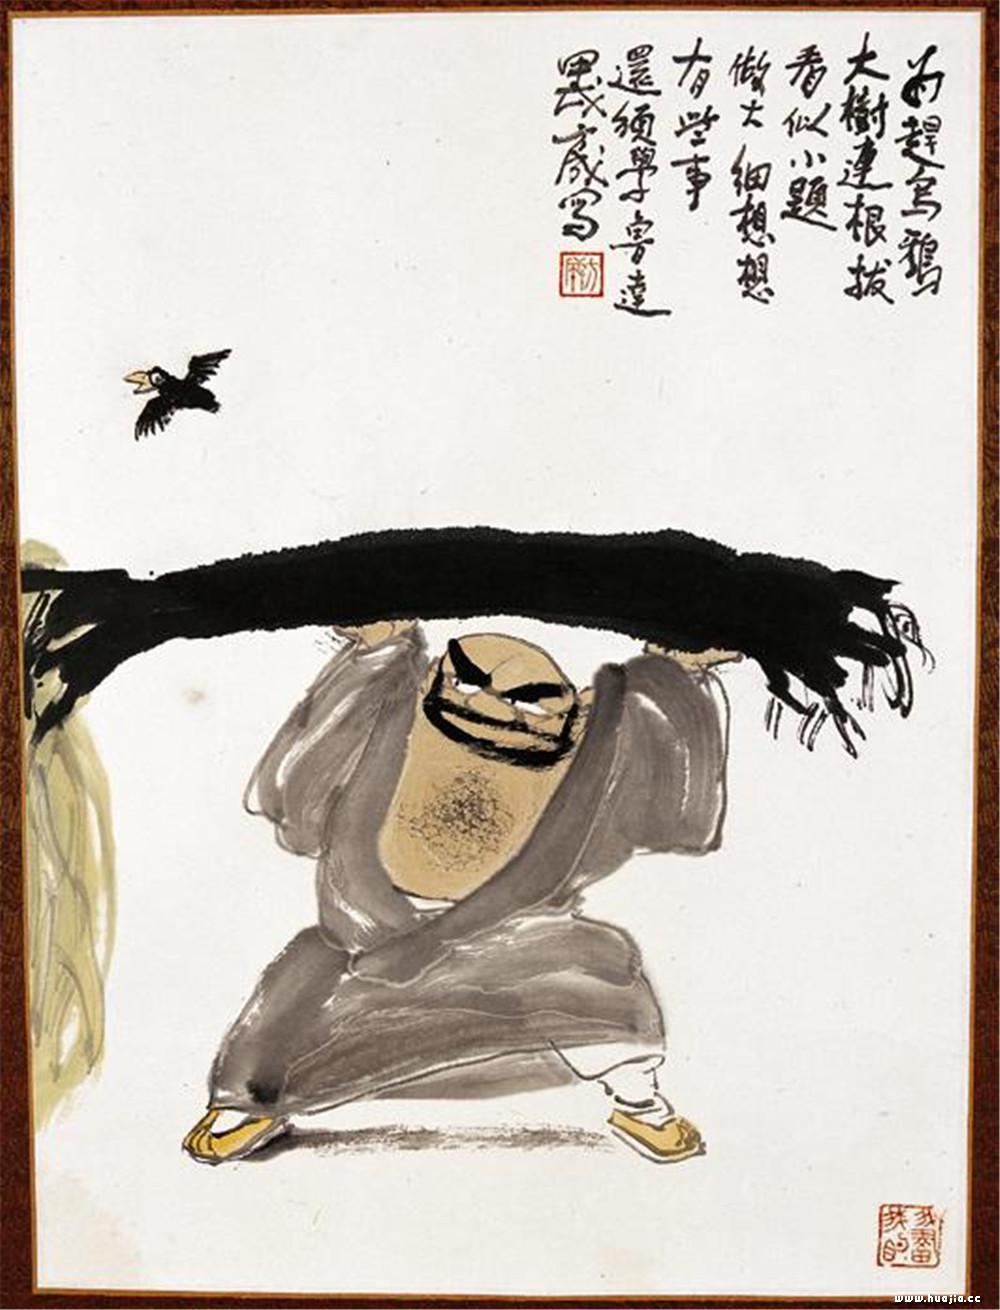 为趕烏鴉
大樹連根拔
看似小題
做大 细想想
有些事
還須學魯達
甲戌方成寫
方成
www.huajia.cc